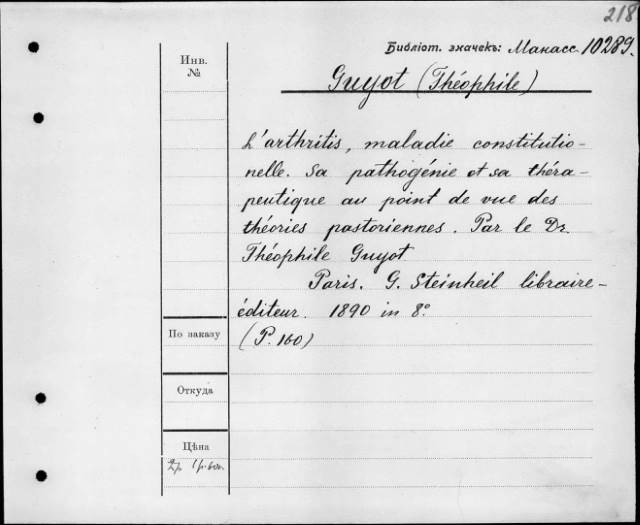 218
Библіот. значекъ: Манасс 10289.
Инв.
№
Guyot (Théophile)
L'arthritis, maladie constitutio-
nelle. Sa pathogénie et sa théra-
peutique au point de vue des
théories pastoriennes. Par le Dr.
Théophile Guyot
Paris. G. Steinheil libraire-
éditeur. 1890 in 8º
(P. 160)
По заказу
Откуда
Цѣна